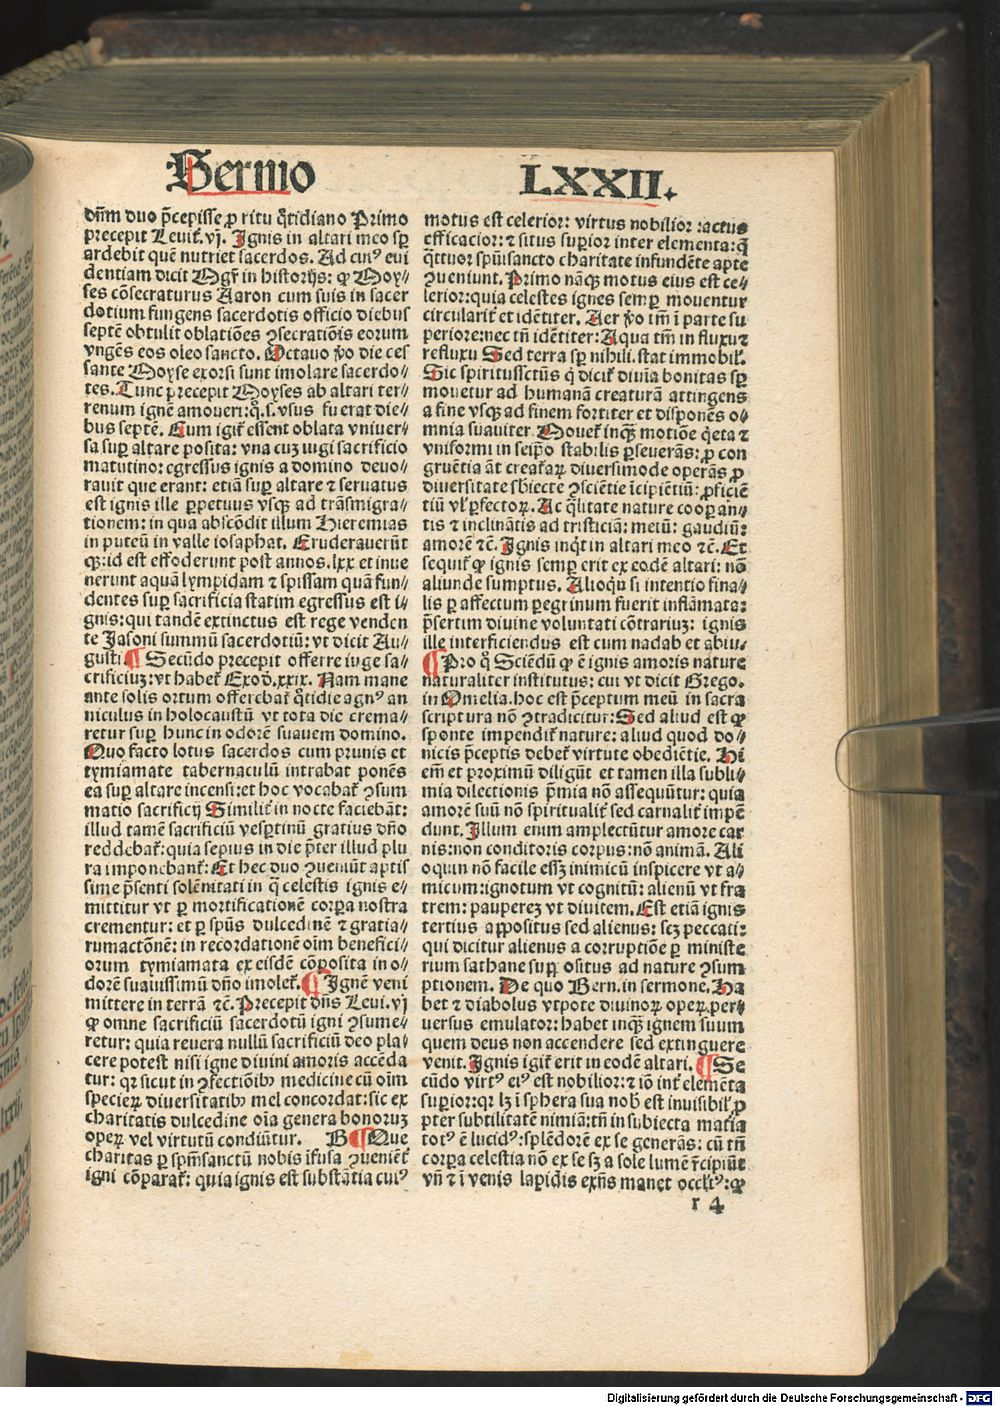 Sermo LXXII.
dñm duo p̃cepisse ꝓ ritu q̃tidiano Primo
precepit Leuit̃. vj. Ignis in altari meo sꝑ
ardebit quẽ nutriet sacerdos. Ad cuiꝰ eui
dentiam dicit Mgr̃ in historijs: ꝙ Moy⸗
ses cõsecraturus Aaron cum suis in sacer
dotium fungens sacerdotis officio diebus
septẽ obtulit oblatiões ꝯsecratiõis eorum
vngẽs eos oleo sancto. Octauo ꝟo die ces
sante Moyse exorsi sunt imolare sacerdo⸗
tes. Tunc precepit Moyses ab altari ter⸗
renum ignẽ amoueri: q̊.s. vsus fuerat die⸗
bus septẽ. Cum igit̃ essent oblata vniuer⸗
sa suꝑ altare posita: vna cuꝫ iugi sacrificio
matutino: egressus ignis a domino deuo⸗
rauit que erant: etiã suꝑ altare ⁊ seruatus
est ignis ille ꝑpetuus vsqꝫ ad trãsmigra⸗
tionem: in qua abscõdit illum Hieremias
in puteũ in valle iosaphat. Eruderauerũt
qꝫ: id est effoderunt post annos .lxx et inue
nerunt aquã lympidam ⁊ spissam quã fun⸗
dentes suꝑ sacrificia statim egressus est i⸗
gnis: qui tandẽ extinctus est rege venden
te Jasoni summũ sacerdotiũ: vt dicit Au⸗
gusti. ¶ Secũdo precepit offerre iuge sa⸗
crificiuꝫ: vt habet̃ Exod̃. xxix. Nam mane
ante solis ortum offerebat̃ q̃tidie agnꝰ an
niculus in holocaustũ vt tota die crema⸗
retur suꝑ hunc in odorẽ suauem domino.
Quo facto lotus sacerdos cum prunis et
tymiamate tabernaculũ intrabat ponẽs
ea suꝑ altare incensi: et hoc vocabat̃ ꝯsum
matio sacrificij Similit̃ in nocte faciebãt:
illud tamẽ sacrificiũ vesꝑtinũ gratius dño
reddebat̃: quia sepius in die p̃ter illud plu
ra imponebant̃: Et hec duo ꝯueniũt aptis
sime p̃senti solẽnitati in q̃ celestis ignis e⸗
mittitur vt ꝑ mortificationẽ corꝑa nostra
crementur: et ꝑ spũs dulcedinẽ ⁊ gratia⸗
rumactõnẽ: in recordationẽ oĩm benefici⸗
orum tymiamata ex eisdẽ cõposita in o⸗
dorẽ suauissimũ dño imolet̃. ¶ Ignẽ veni
mittere in terrã ⁊c̃. Precepit dñs Leui. vj
ꝙ omne sacrificiũ sacerdotũ igni ꝯsume⸗
retur: quia reuera nullũ sacrificiũ deo pla⸗
cere potest nisi igne diuini amoris acceda
tur: qꝛ sicut in ꝯfectiõibꝫ medicine cũ oĩm
specieꝝ diuersitatibꝫ mel concordat: sic ex
charitatis dulcedine oĩa genera bonoruꝫ
opeꝝ vel virtutũ condiũtur. B ¶ Que
charitas ꝑ spm̃sanctũ nobis ĩfusa ꝯueniẽt̃
igni cõparat̃: quia ignis est substãtia cuiꝰ
motus est celerior: virtus nobilior: actus
efficacior: ⁊ situs suꝑior inter elementa: q̃
q̃ttuor spũisancto charitate infundẽte apte
ꝯueniunt. Primo nãqꝫ motus eius est ce⸗
lerior: quia celestes ignes semꝑ mouentur
circularit̃ et idẽtiter. Aer ꝟo tm̃ ĩ parte su
periore: nec tñ idẽtiter: Aqua tm̃ in fluxu ⁊
refluxu Sed terra sꝑ nihili. stat immobil̃.
Sic spiritussctũs q̃ dicit̃ diuĩa bonitas sꝑ
mouetur ad humanã creaturã attingens
a fine vsqꝫ ad finem fortiter et disponẽs o⸗
mnia suauiter. Mouet̃ inqꝫ motiõe q̃eta ⁊
vniformi in seip̃o stabilis ꝑseuerãs: ꝓ con
gruẽtia ãt creat̃aꝝ diuersimode operãs ꝓ
diuersitate sbiecte ꝯsciẽtie ĩcipiẽtiũ: ꝓficiẽ
tiũ vl̃ ꝑfectoꝝ. Ac q̃litate nature cooꝑan⸗
tis ⁊ inclinãtis ad tristiciã: metũ: gaudiũ:
amorẽ ⁊c̃. Ignis inq̃t in altari meo ⁊c̃. Et
sequit̃ ꝙ ignis semꝑ erit ex eodẽ altari: nõ
aliunde sumptus. Alioqn̄ si intentio fina⸗
lis ꝑ affectum ꝑegrinum fuerit inflãmata:
p̃sertim diuine voluntati cõtrariuꝫ: ignis
ille interficiendus est cum nadab et abiu.
¶ Pro q̊ Sciẽdũ ꝙ ẽ ignis amoris nature
naturaliter institutus: cui vt dicit Grego.
in Omelia. hoc est p̃ceptum meũ in sacra
scriptura nõ ꝯtradicitur: Sed aliud est ꝙ
sponte impendit̃ nature: aliud quod do⸗
nicis p̃ceptis debet̃ virtute obediẽtie. Hi
em̃ et proximũ diligũt et tamen illa subli⸗
mia dilectionis p̃mia nõ asseqũtur: quia
amorẽ suũ nõ spiritualit̃ sed carnalit̃ impẽ
dunt. Illum enim amplectũtur amore car
nis: non conditoris corpus: nõ animã. Ali
oquin nõ facile essꝫ inimicũ inspicere vt a⸗
micum: ignotum vt cognitũ: alienũ vt fra
trem: pauperẽꝫ vt diuitem. Est etiã ignis
tertius appositus sed alienus: scꝫ peccati:
qui dicitur alienus a corruptiõe ꝑ ministe
rium sathane suppositus ad nature ꝯsum
ptionem. De quo Bern. in sermone. Ha
bet ⁊ diabolus vtpote diuinoꝝ opeꝝ per⸗
uersus emulator: habet inqꝫ ignem suum
quem deus non accendere sed extinguere
venit. Ignis igit̃ erit in eodẽ altari. ¶ Se
cũdo virtꝰ eiꝰ est nobilior: ⁊ iõ int̃ elemẽta
suꝑior: qꝛ lꝫ ĩ sphera sua nob̃ est inuisibil̃ ꝓ
pter subtilitatẽ nimiã: tñ in subiecta mat̃ia
totꝰ ẽ lucidꝰ: splẽdorẽ ex se generãs: cũ tñ
corꝑa celestia nõ ex se sꝫ a sole lumẽ r̃cipiũt
vñ ⁊ ĩ venis lapidis exñs manet occl̃tꝰ: ꝙ
r 4
Digitalisierung gefördert durch die Deutsche Forschungsgemeinschaft - DFG